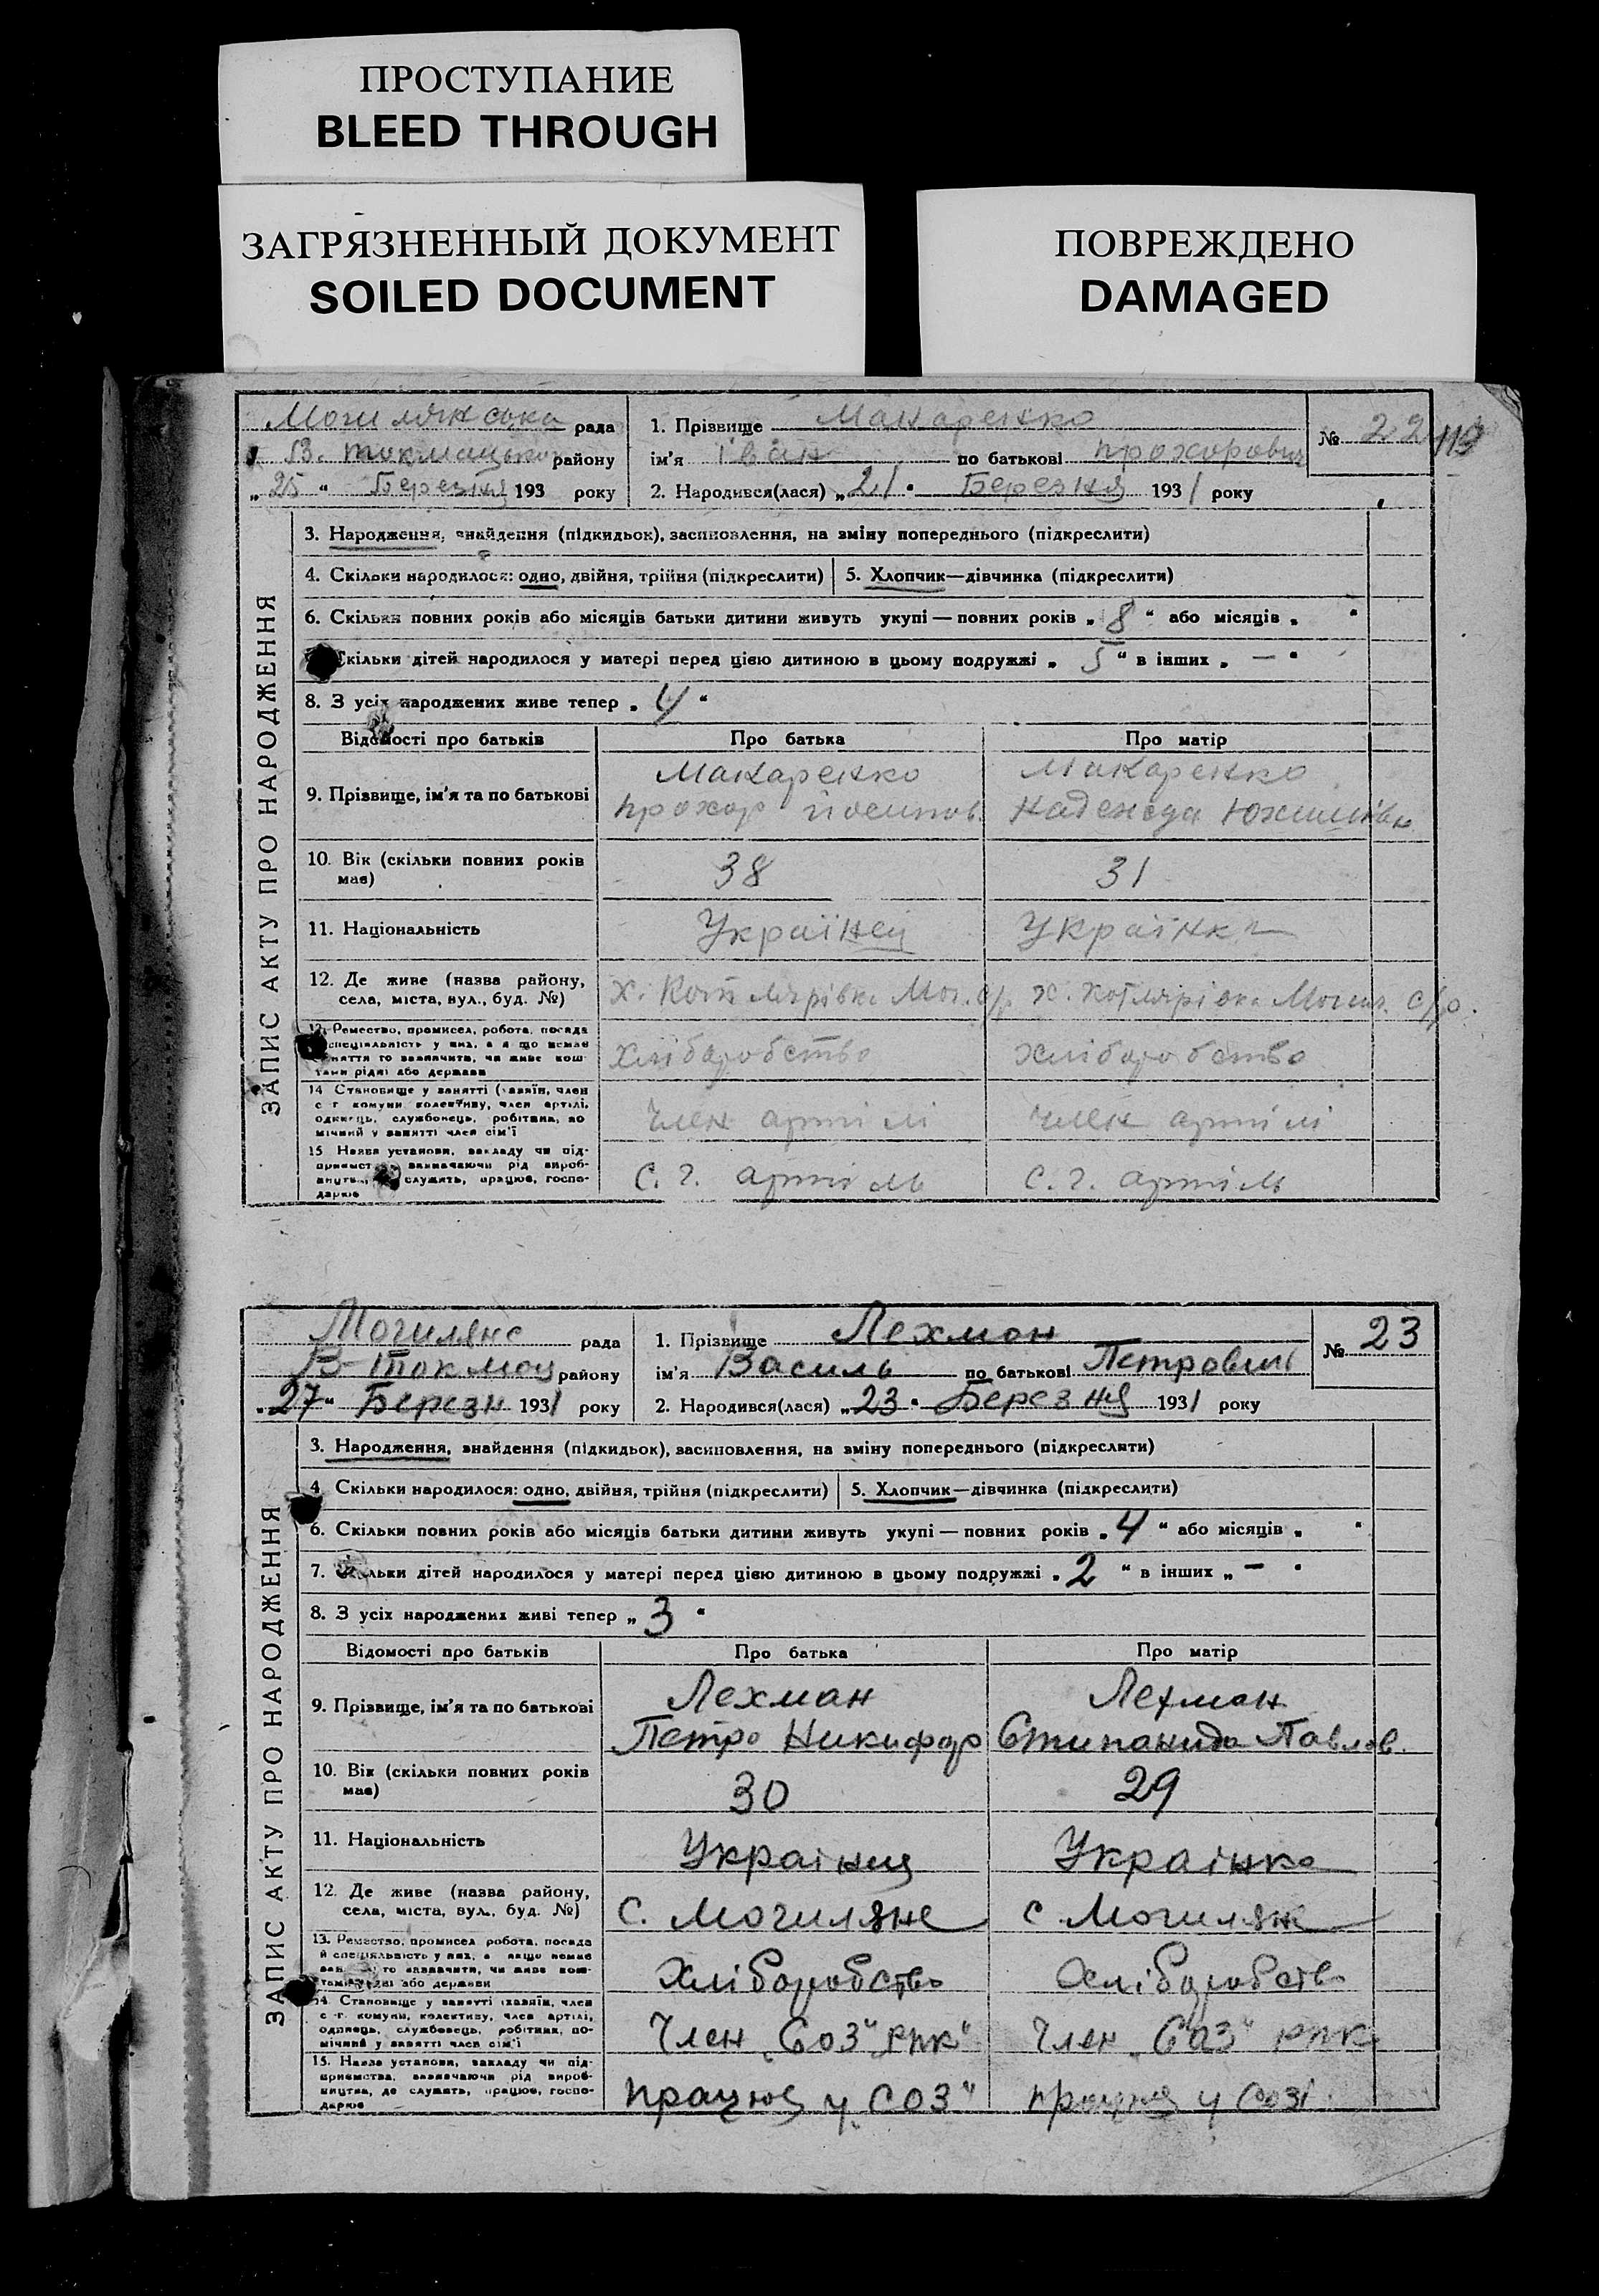 ПРОСТУПАНИЕ
BLEED THROUGH
ЗАГРЯЗНЕННЫЙ ДОКУМЕНТ
SOILED DOCUMENT
ПОВРЕЖДЕНО
DAMAGED
ЗАПИС АКТУ ПРО НАРОДЖЕННЯ
Могилянська рада
В. Токмацького району
„25“ Березня 193 року
1. Прізвище Макаренко
ім'я Іван по батькові Прохорович
2. Народився(лася) „21“ Березня 1931 року
№ 22
113
3. Народження, знайдення (підкидьок), засиновлення, на зміну попереднього (підкреслити)
4. Скільки народилося: одно, двійня, трійня (підкреслити) 5. Хлопчик—дівчинка (підкреслити)
6. Скільки повних років або місяців батьки дитини живуть укупі — повних років „8“ або місяців „ “
Скільки дітей народилося у матері перед цією дитиною в цьому подружжі „5“ в інших „—“
8. З усіх народжених живе тепер „4“
Відомості про батьків Про батька Про матір
9. Прізвище, ім'я та по батькові
Макаренко
Прохор Йосипов.
Макаренко
Надежда Юхимівн
10. Вік (скільки повних років має) 38 31
11. Національність Українец Українка
12. Де живе (назва району, села, міста, вул., буд. №)
х. Котлярівка Мог. с/р.
х. Котлярівка Могил. с/р.
13. Ремество, промисел, робота, посада
спеціальність у них, а якщо немає
заняття то зазначити, чи живе кош-
тами рідні або держави
Хліборобство Хліборобство
14 Становище у занятті (хазяїн, член
с.-г. комуни, колективу, член артілі,
одинець, службовець, робітник, по-
мічний у занятті член сім'ї
Член артілі Член артілі
15 Назва установи, закладу чи під-
приємст зазначаючи рід вироб-
служить, працює, госпо-
дарює
С. г. артіль С. г. артіль
ЗАПИС АКТУ ПРО НАРОДЖЕННЯ
Могилянс рада
В-Токмац району
„27“ Березн 1931 року
1. Прізвище Лехман
ім'я Василь по батькові Петрович
2. Народився(лася) „23“ Березня 1931 року
№ 23
3. Народження, знайдення (підкидьок), засиновлення, на зміну попереднього (підкреслити)
4. Скільки народилося: одно, двійня, трійня (підкреслити) 5. Хлопчик—дівчинка (підкреслити)
6. Скільки повних років або місяців батьки дитини живуть укупі — повних років „4“ або місяців „ “
7. Скільки дітей народилося у матері перед цією дитиною в цьому подружжі „2“ в інших „—“
8. З усіх народжених живі тепер „3“
Відомості про батьків Про батька Про матір
9. Прізвище, ім'я та по батькові
Лехман
Петро Никифор
Лехман
Стипанида Павлов.
10. Вік (скільки повних років має) 30 29
11. Національність Украінец Украінка
12. Де живе (назва району, села, міста, вул., буд. №)
с. Могиляне с Могиляне
13. Ремество, промисел робота, посада
й спеціяльність у них, а якщо немає
то зазначити, чи живе кош-
тами рідні або держави
Хліборобство Хліборобств
14. Становище у занятті (хазяїн, член
с.-г. комуни, колективу, член артілі,
одинець, службовець, робітник, по-
мічний у занятті член сім'ї
Член „Соз“ „РПК“ Член „Соз“ РПК
15. Назва установи, закладу чи під-
приємства, зазначаючи рід вироб-
ництва, де служить, працює, госпо-
дарює
працює у „СОЗ“ працює у Созі